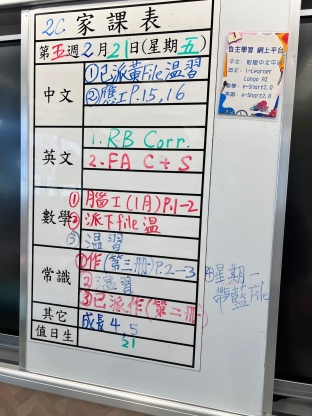 2C 家課表
第五週2月21日(星期五)
中文
①已派黃File溫習
②應工P.15,16
英文
1. RB Corr.
2. FA C + S
數學
①腦工(1月)P.1-2
②派下file溫
③溫習
常識
①作(第三冊)P.2-3
②溫習
③已派作(第二冊)
④星期一
帶藍File
其它
成長4,5
值日生
21
自主學習 網上平台
i-Learner
e-Smart2.0
e-Smart2.0